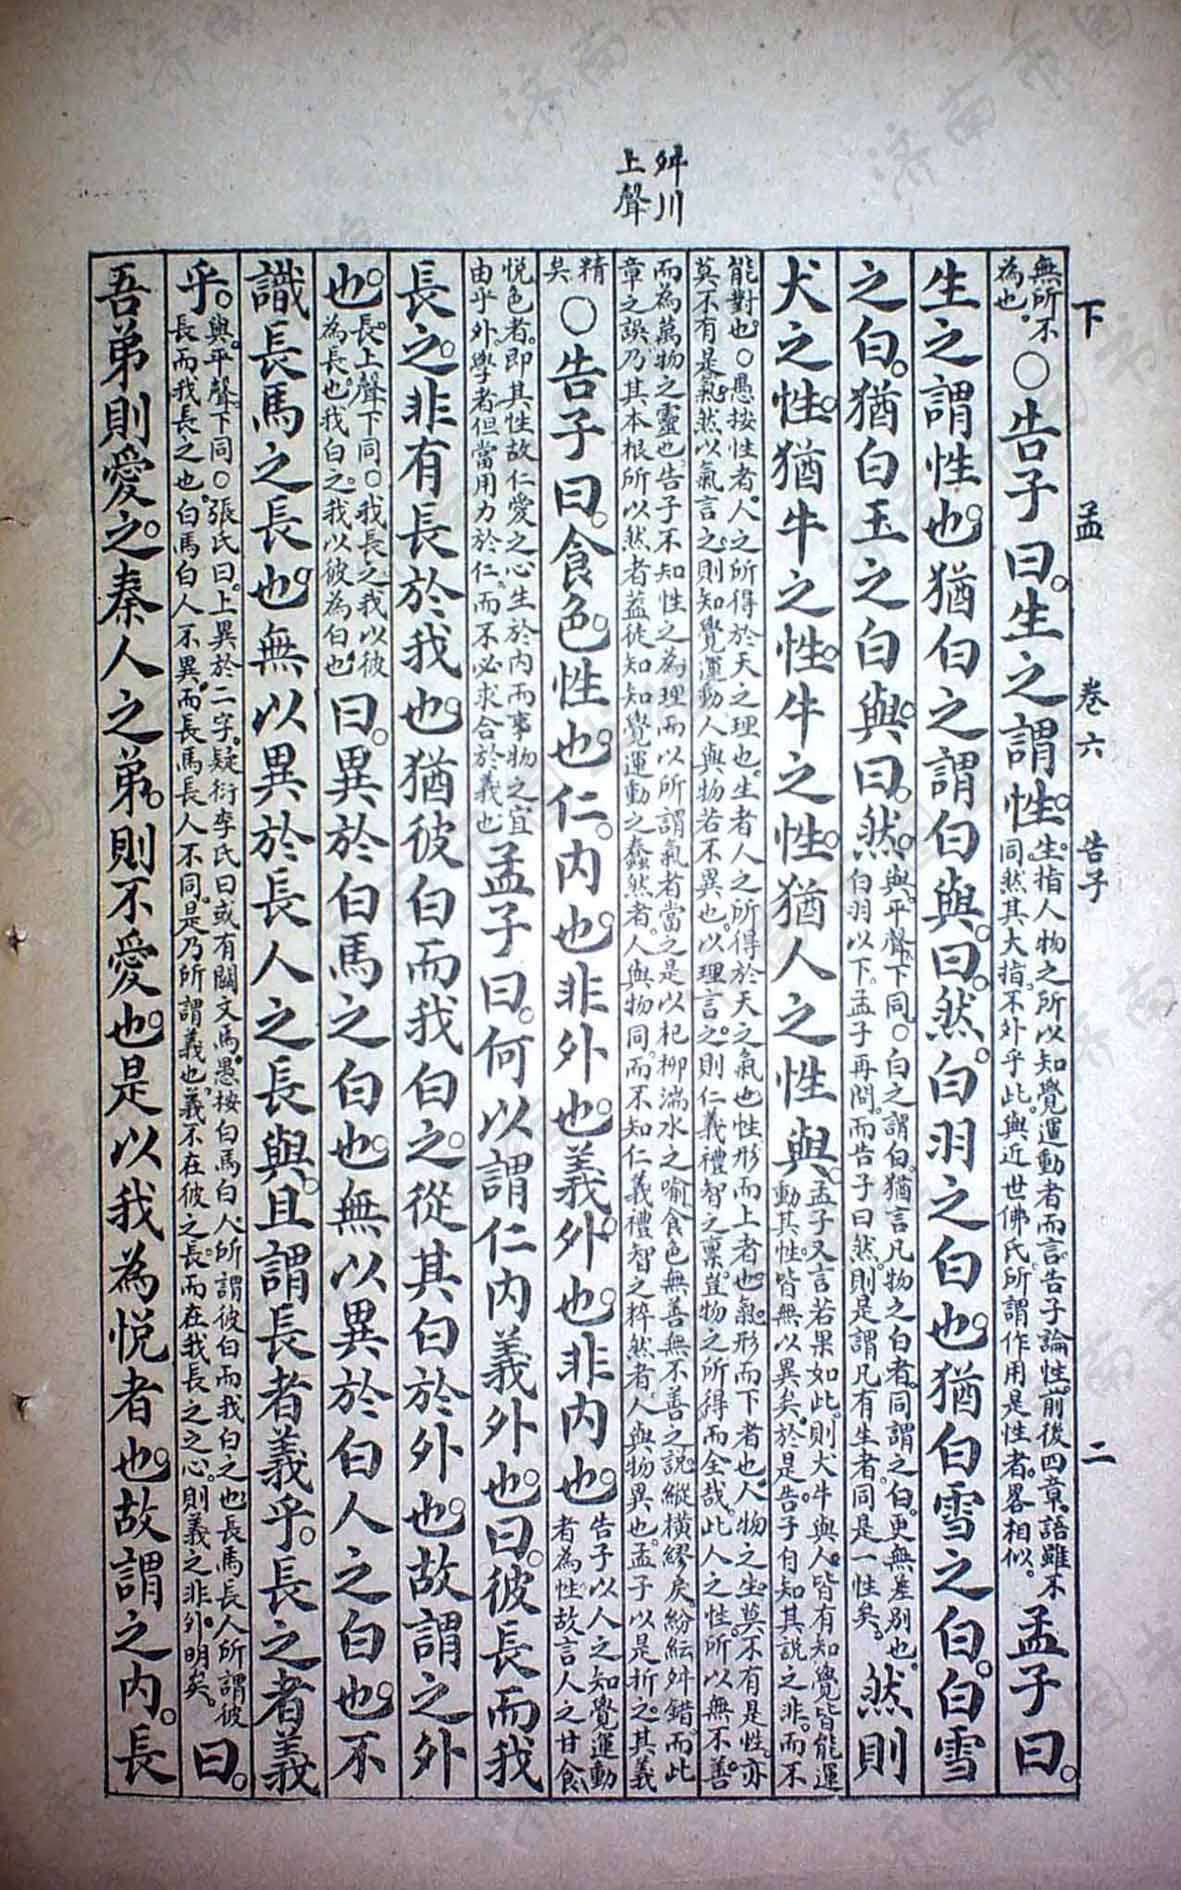 舛川
上聲
下 孟 卷六 告子 二
無所不為也。○告子曰。生之謂性。生。指人物之所以知覺運動者而言。告子論性。前後四章。語雖不同。然其大指。不外乎此。與近世佛氏。所謂作用是性者。畧相似。孟子曰。
生之謂性也。猶白之謂白與。曰。然。白羽之白也。猶白雪之白。白雪
之白。猶白玉之白與。曰。然。與。平聲。下同。○白之謂白。猶言凡物之白者。同謂之白。更無差別也。白羽以下。孟子再問。而告子曰然。則是謂凡有生者。同是一性矣。然則
犬之性。猶牛之性。牛之性。猶人之性與。孟子又言若果如此。則犬牛與人。皆有知覺。皆能運動。其性。皆無以異矣。於是。告子自知其說之非。而不
能對也。○愚按性者。人之所得於天之理也。生者人之所得於天之氣也。性形而上者也。氣形而下者也。人物之生。莫不有是性。亦莫不有是氣。然以氣言之。則知覺運動人與物若不異也。以理言之。則仁義禮智之稟。豈物之所得而全哉。此人之性。所以無不善。
而為萬物之靈也。告子不知性之為理。而以所謂氣者當之。是以杞柳湍水之喻。食色無善無不善之說。縱橫繆戾。紛紜舛錯。而此章之誤。乃其本根。所以然者。蓋徒知知覺運動之蠢然者。人與物同。而不知仁義禮智之粹然者。人與物異也。孟子以是折之。其義
精矣○告子曰。食色。性也。仁。內也。非外也。義。外也。非內也告子以人之知覺運動者為性。故言人之甘食
悅色者。即其性。故仁愛之心。生於內。而事物之宜由乎外。學者但當用力於仁。而不必求合於義也孟子曰。何以謂仁內義外也。曰。彼長而我
長之。非有長於我也。猶彼白而我白之。從其白於外也。故謂之外
也。長。上聲。下同。○我長之。我以彼為長也。我白之。我以彼為白也。曰。異於白馬之白也。無以異於白人之白也。不
識長馬之長也。無以異於長人之長與。且謂長者義乎。長之者義
乎。與。平聲。下同。○張氏曰。上異於二字。疑衍。李氏曰或有闕文焉。愚按白馬白人。所謂彼白而我白之也。長馬長人。所謂彼長而我長之也。白馬白人不異。而長馬長人不同。是乃所謂義也。義不在彼之長。而在我長之之心。則義之非外。明矣。曰。
吾弟則愛之。秦人之弟。則不愛也。是以我為悅者也。故謂之內。長